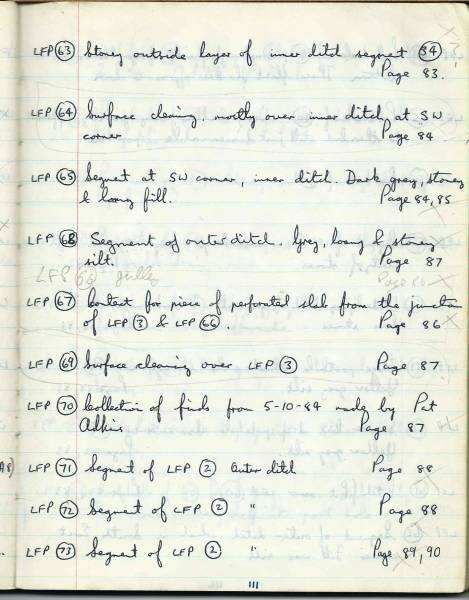 LFP 63 Stoney outside layer of inner ditch segment 34
Page 83.
LFP 64 Surface cleaning, mostly over inner ditch, at SW
corner Page 84
LFP 65 Segment at SW corner, inner ditch. Dark grey, stoney
& loamy fill. Page 84, 85
LFP 68 Segment of outer ditch. Grey, loamy & stoney
silt. Page 87
LFP 66 gulley Page 86
LFP 67 Context for piece of perforated slab from the junction
of LFP 3 & LFP 66. Page 86
LFP 69 Surface cleaning over LFP 3 Page 87
LFP 70 Collection of finds from 5-10-84 made by Pat
Adkins. Page 87
LFP 71 Segment of LFP 2 outer ditch Page 88
LFP 72 Segment of LFP 2 " Page 88
LFP 73 Segment of LFP 2 " Page 89, 90
111